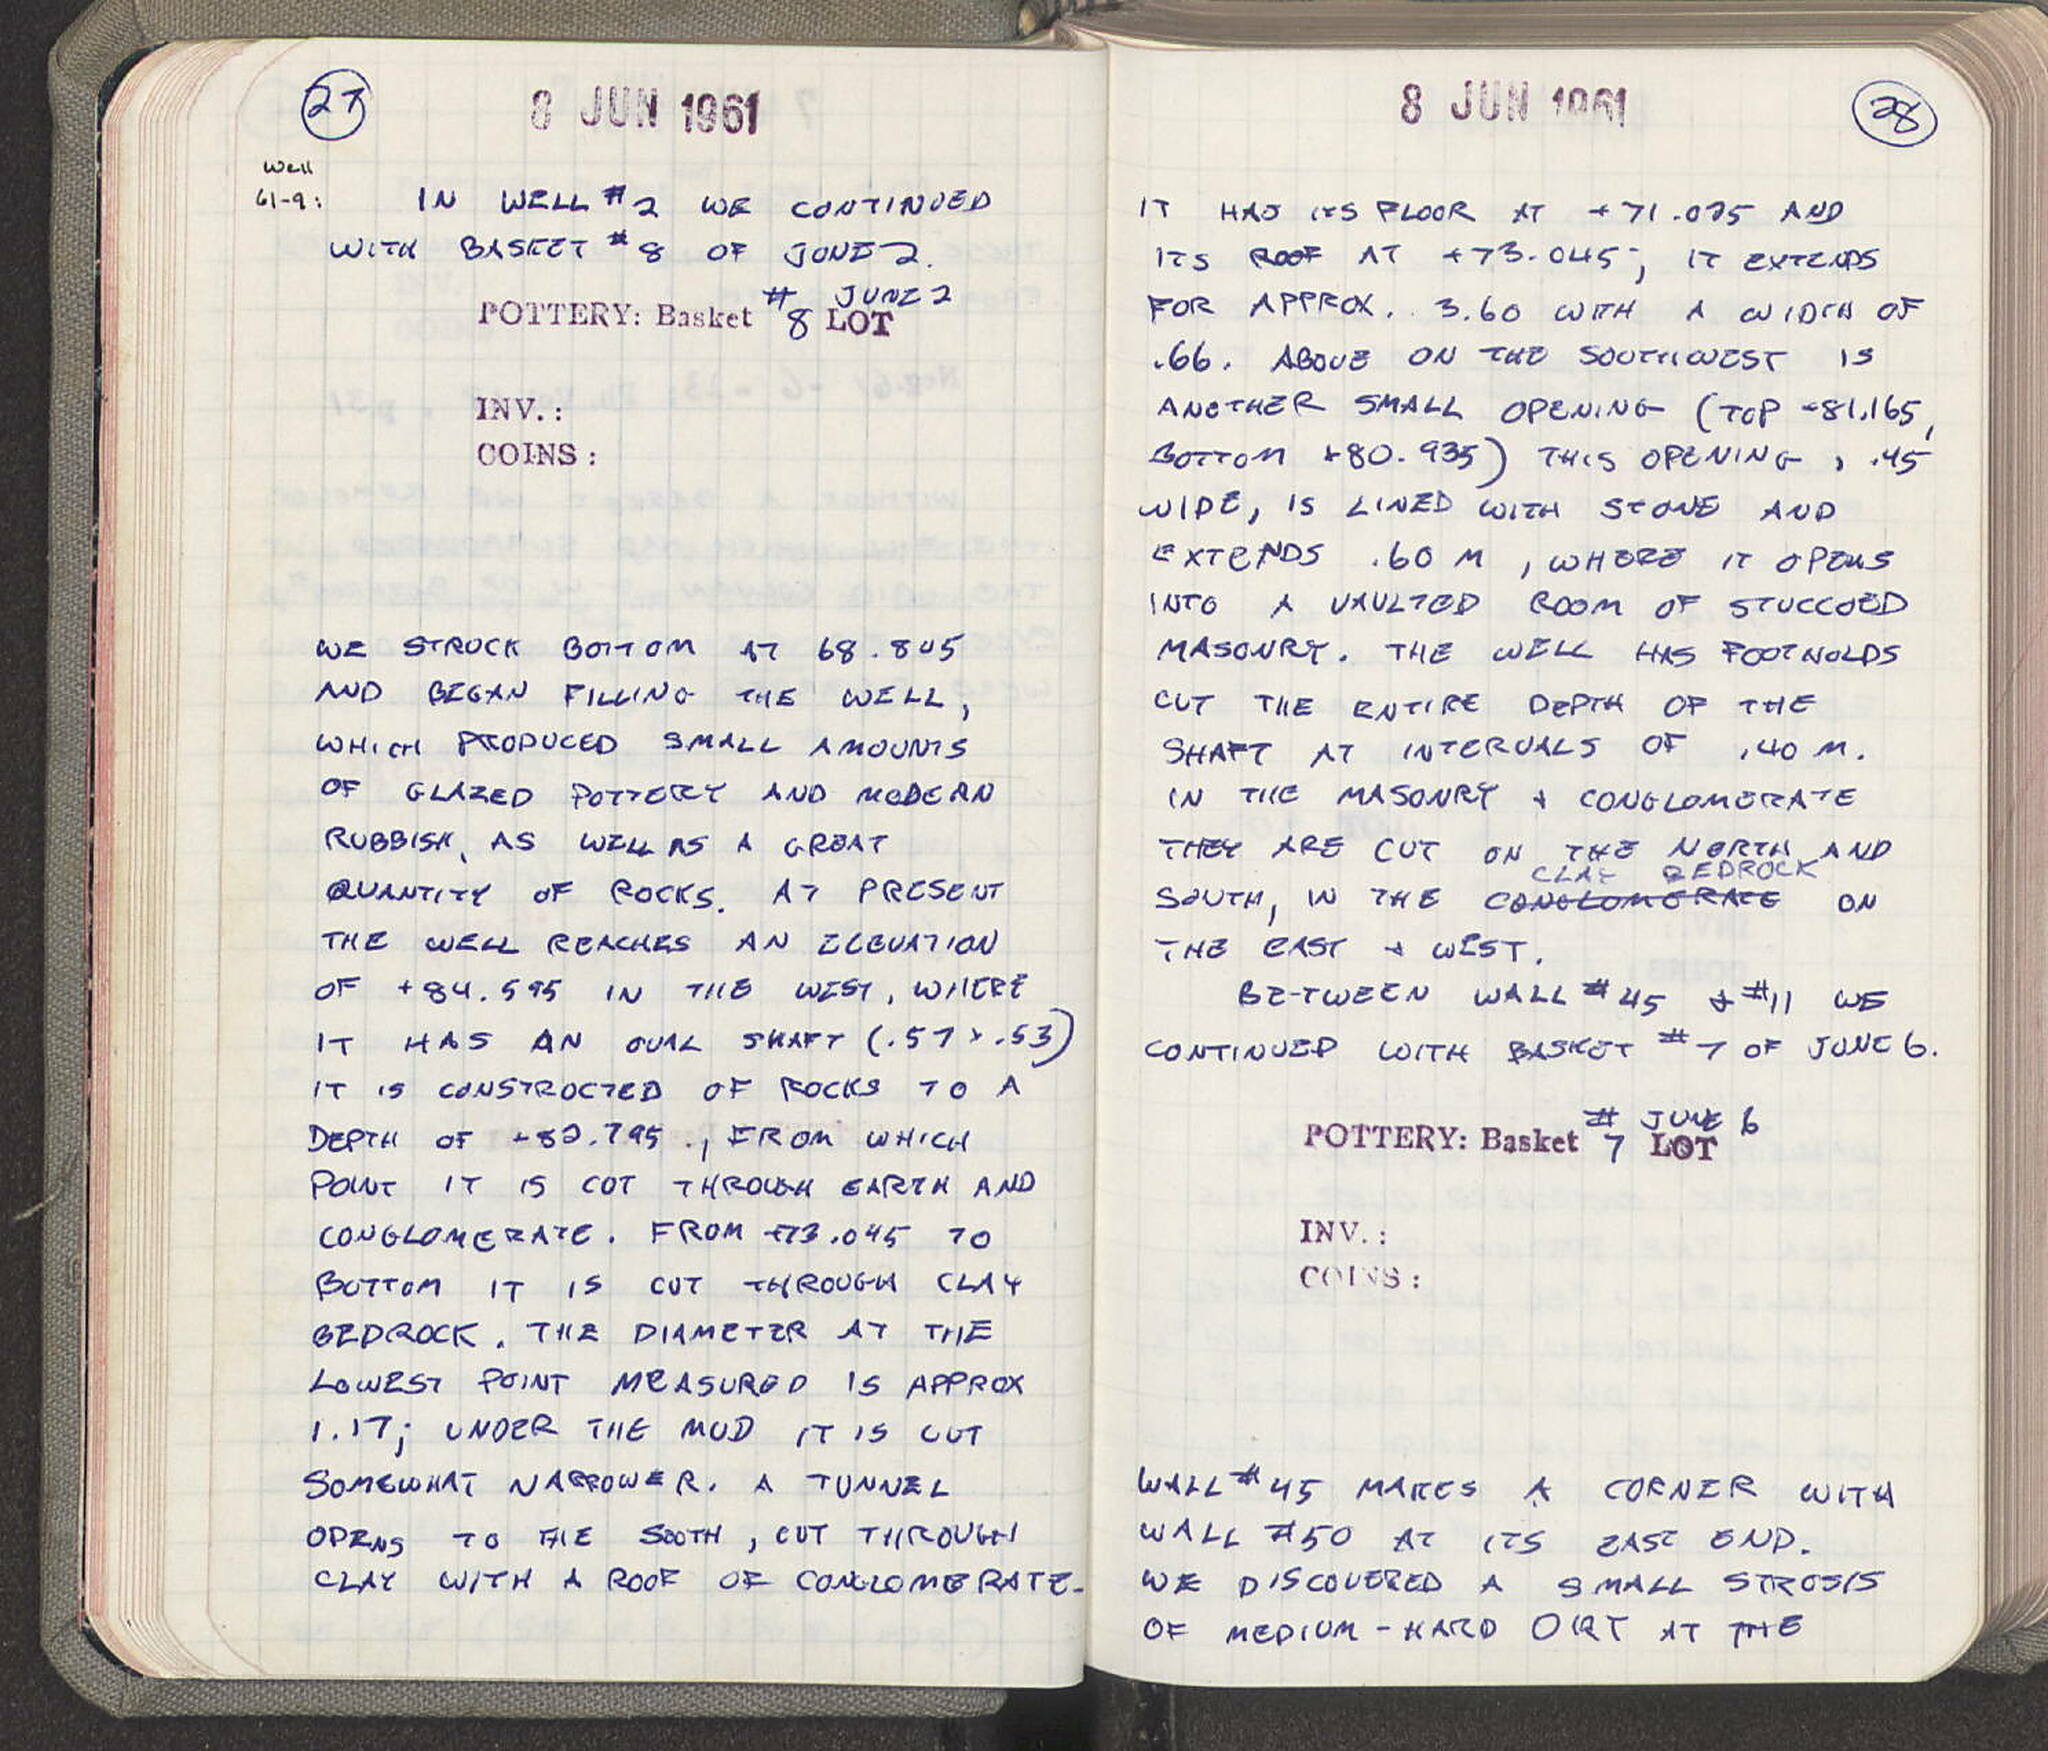 27
8 JUN 1961
Well
61-9:
IN WELL #2 WE CONTINUED
WITH BASKET #8 OF JUNE 2.
POTTERY: Basket #8 LOT JUNE 2
INV.:
COINS:
WE STRUCK BOTTOM AT 68.805
AND BEGAN FILLING THE WELL,
WHICH PRODUCED SMALL AMOUNTS
OF GLAZED POTTERY AND MODERN
RUBBISH, AS WELL AS A GREAT
QUANTITY OF ROCKS. AT PRESENT
THE WELL REACHES AN ELEVATION
OF +84.595 IN THE WEST, WHERE
IT HAS AN OVAL SHAFT (.57 x .53)
IT IS CONSTRUCTED OF ROCKS TO A
DEPTH OF +82.795., FROM WHICH
POINT IT IS CUT THROUGH EARTH AND
CONGLOMERATE. FROM +73.045 TO
BOTTOM IT IS CUT THROUGH CLAY
BEDROCK. THE DIAMETER AT THE
LOWEST POINT MEASURED IS APPROX
1.17; UNDER THE MUD IT IS CUT
SOMEWHAT NARROWER. A TUNNEL
OPENS TO THE SOUTH, CUT THROUGH
CLAY WITH A ROOF OF CONGLOMERATE.
8 JUN 1961
28
IT HAS ITS FLOOR AT +71.095 AND
ITS ROOF AT +73.045; IT EXTENDS
FOR APPROX. 3.60 WITH A WIDTH OF
.66. ABOVE ON THE SOUTHWEST IS
ANOTHER SMALL OPENING (TOP +81.165,
BOTTOM +80.935) THIS OPENING, .45
WIDE, IS LINED WITH STONE AND
EXTENDS .60 M, WHERE IT OPENS
INTO A VAULTED ROOM OF STUCCOED
MASONRY. THE WELL HAS FOOTHOLDS
CUT THE ENTIRE DEPTH OF THE
SHAFT AT INTERVALS OF .40 M.
IN THE MASONRY & CONGLOMERATE
THEY ARE CUT ON THE NORTH AND
CLAY BEDROCK
SOUTH, IN THE CONGLOMERATE ON
THE EAST & WEST.
BETWEEN WALL #45 & #11 WE
CONTINUED WITH BASKET #7 OF JUNE 6.
POTTERY: Basket #7 LOT JUNE 6
INV.:
COINS:
WALL #45 MAKES A CORNER WITH
WALL #50 AT ITS EAST END.
WE DISCOVERED A SMALL STROSIS
OF MEDIUM-HARD DIRT AT THE